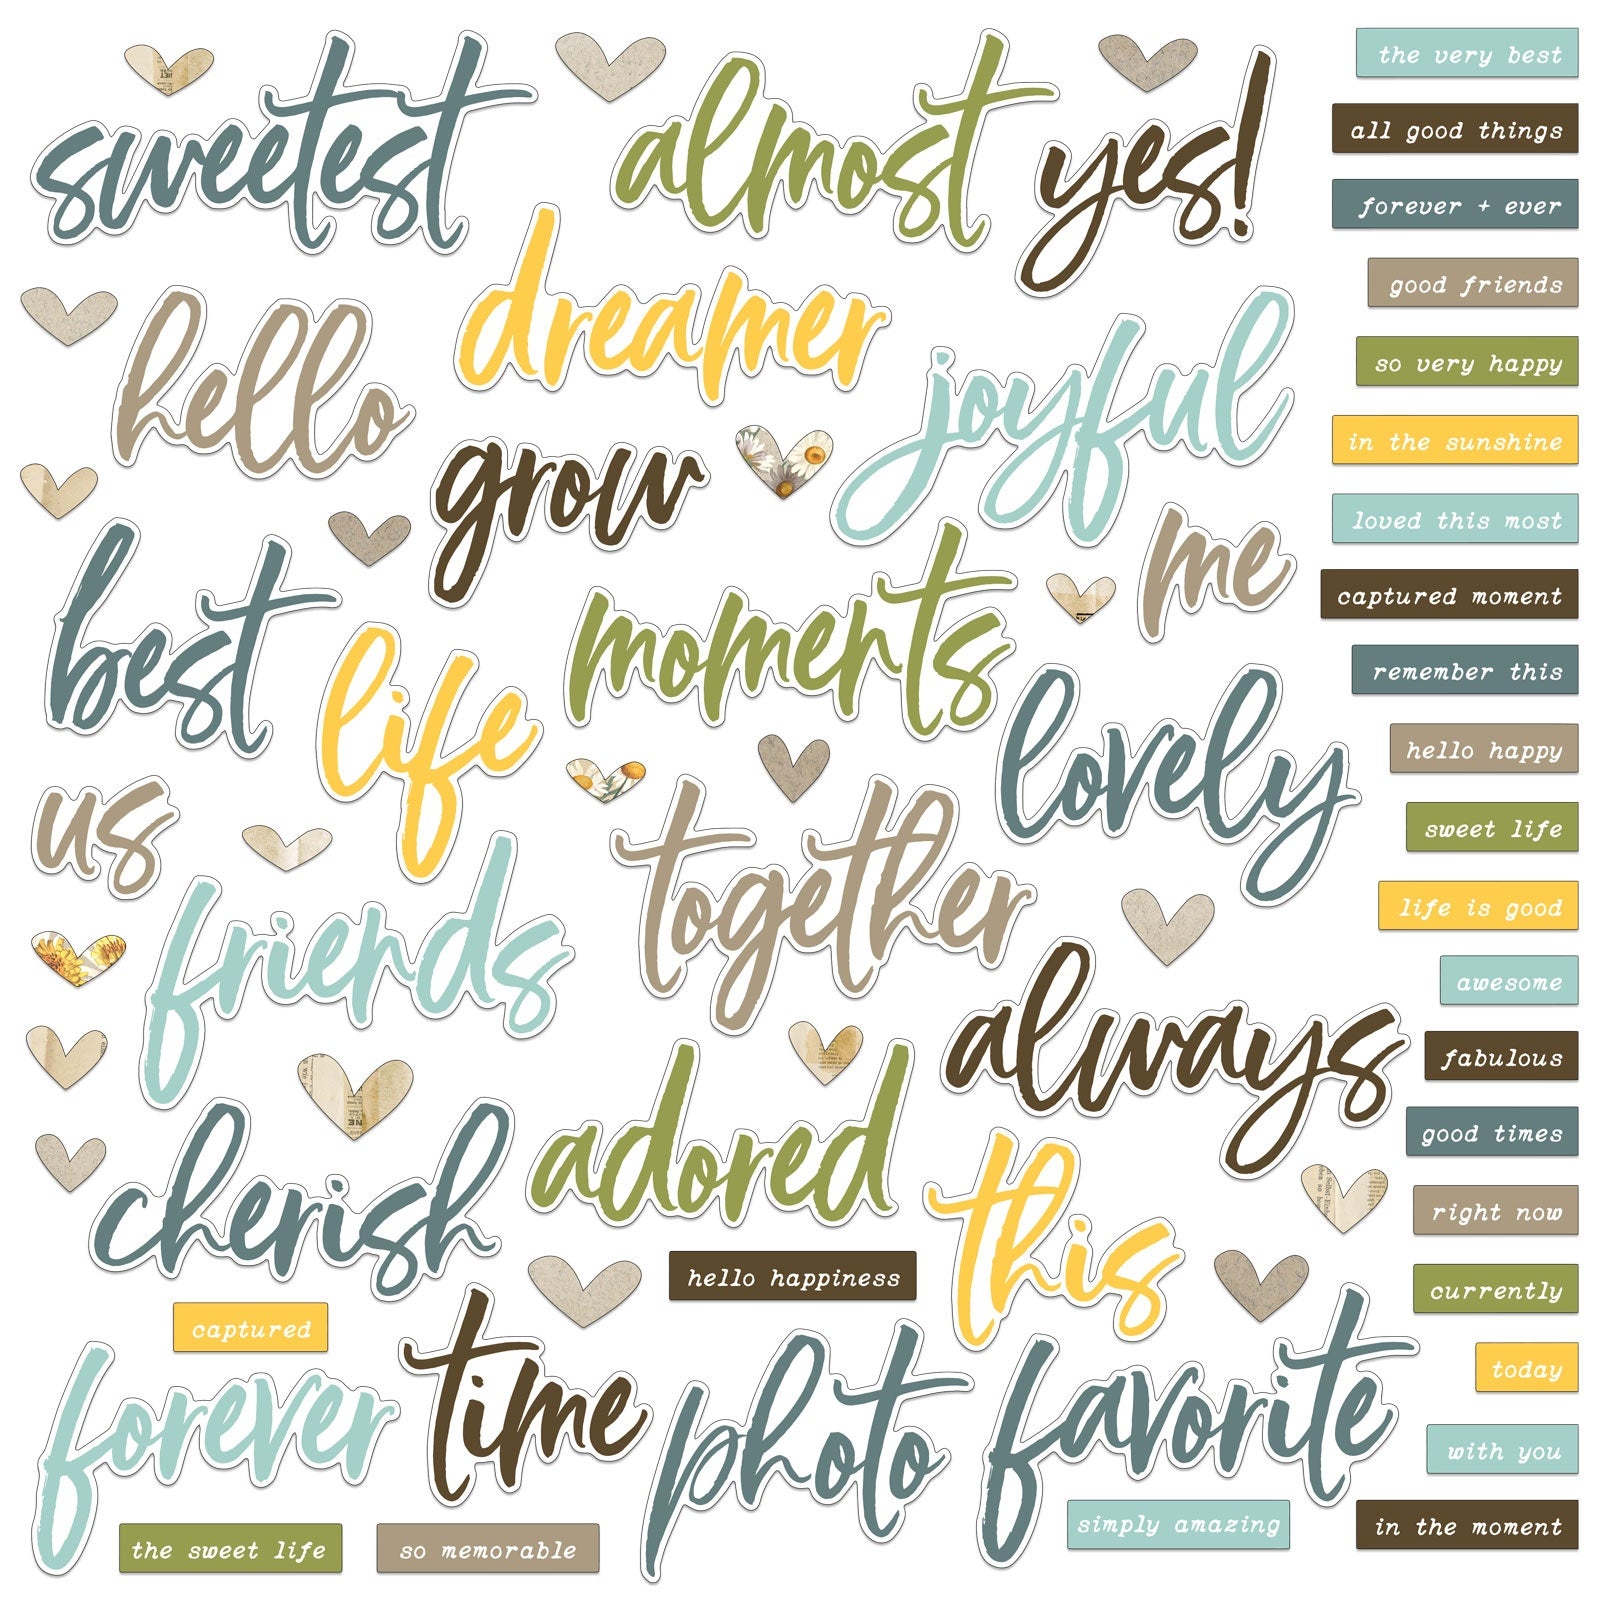 sweetest
almost
yes!
the very best
all good things
forever + ever
dreamer
hello
good friends
joyful
so very happy
grow
in the sunshine
loved this most
me
best
moments
captured moment
life
remember this
lovely
hello happy
us
together
sweet life
friends
life is good
always
awesome
fabulous
adored
cherish
good times
this
right now
hello happiness
currently
captured
time
photo
favorite
today
forever
with you
simply amazing
in the moment
the sweet life
so memorable